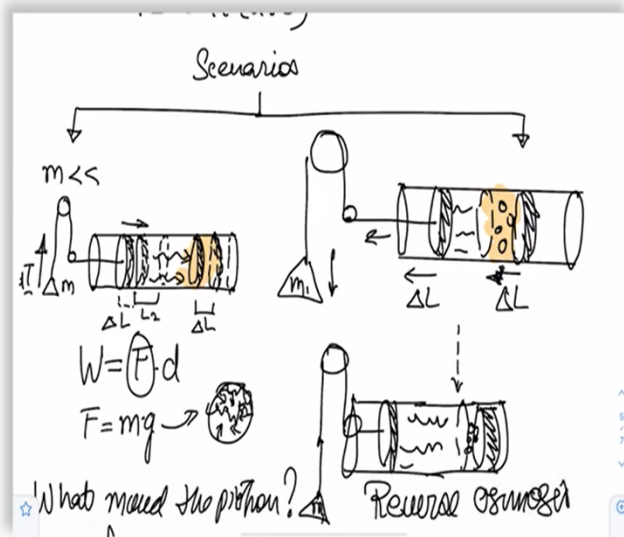 Scenarios
m<<
m
ΔL L2 ΔL
m1
ΔL ΔL
W=F·d
F=mg
What moved the piston?
m
Reverse osmosis